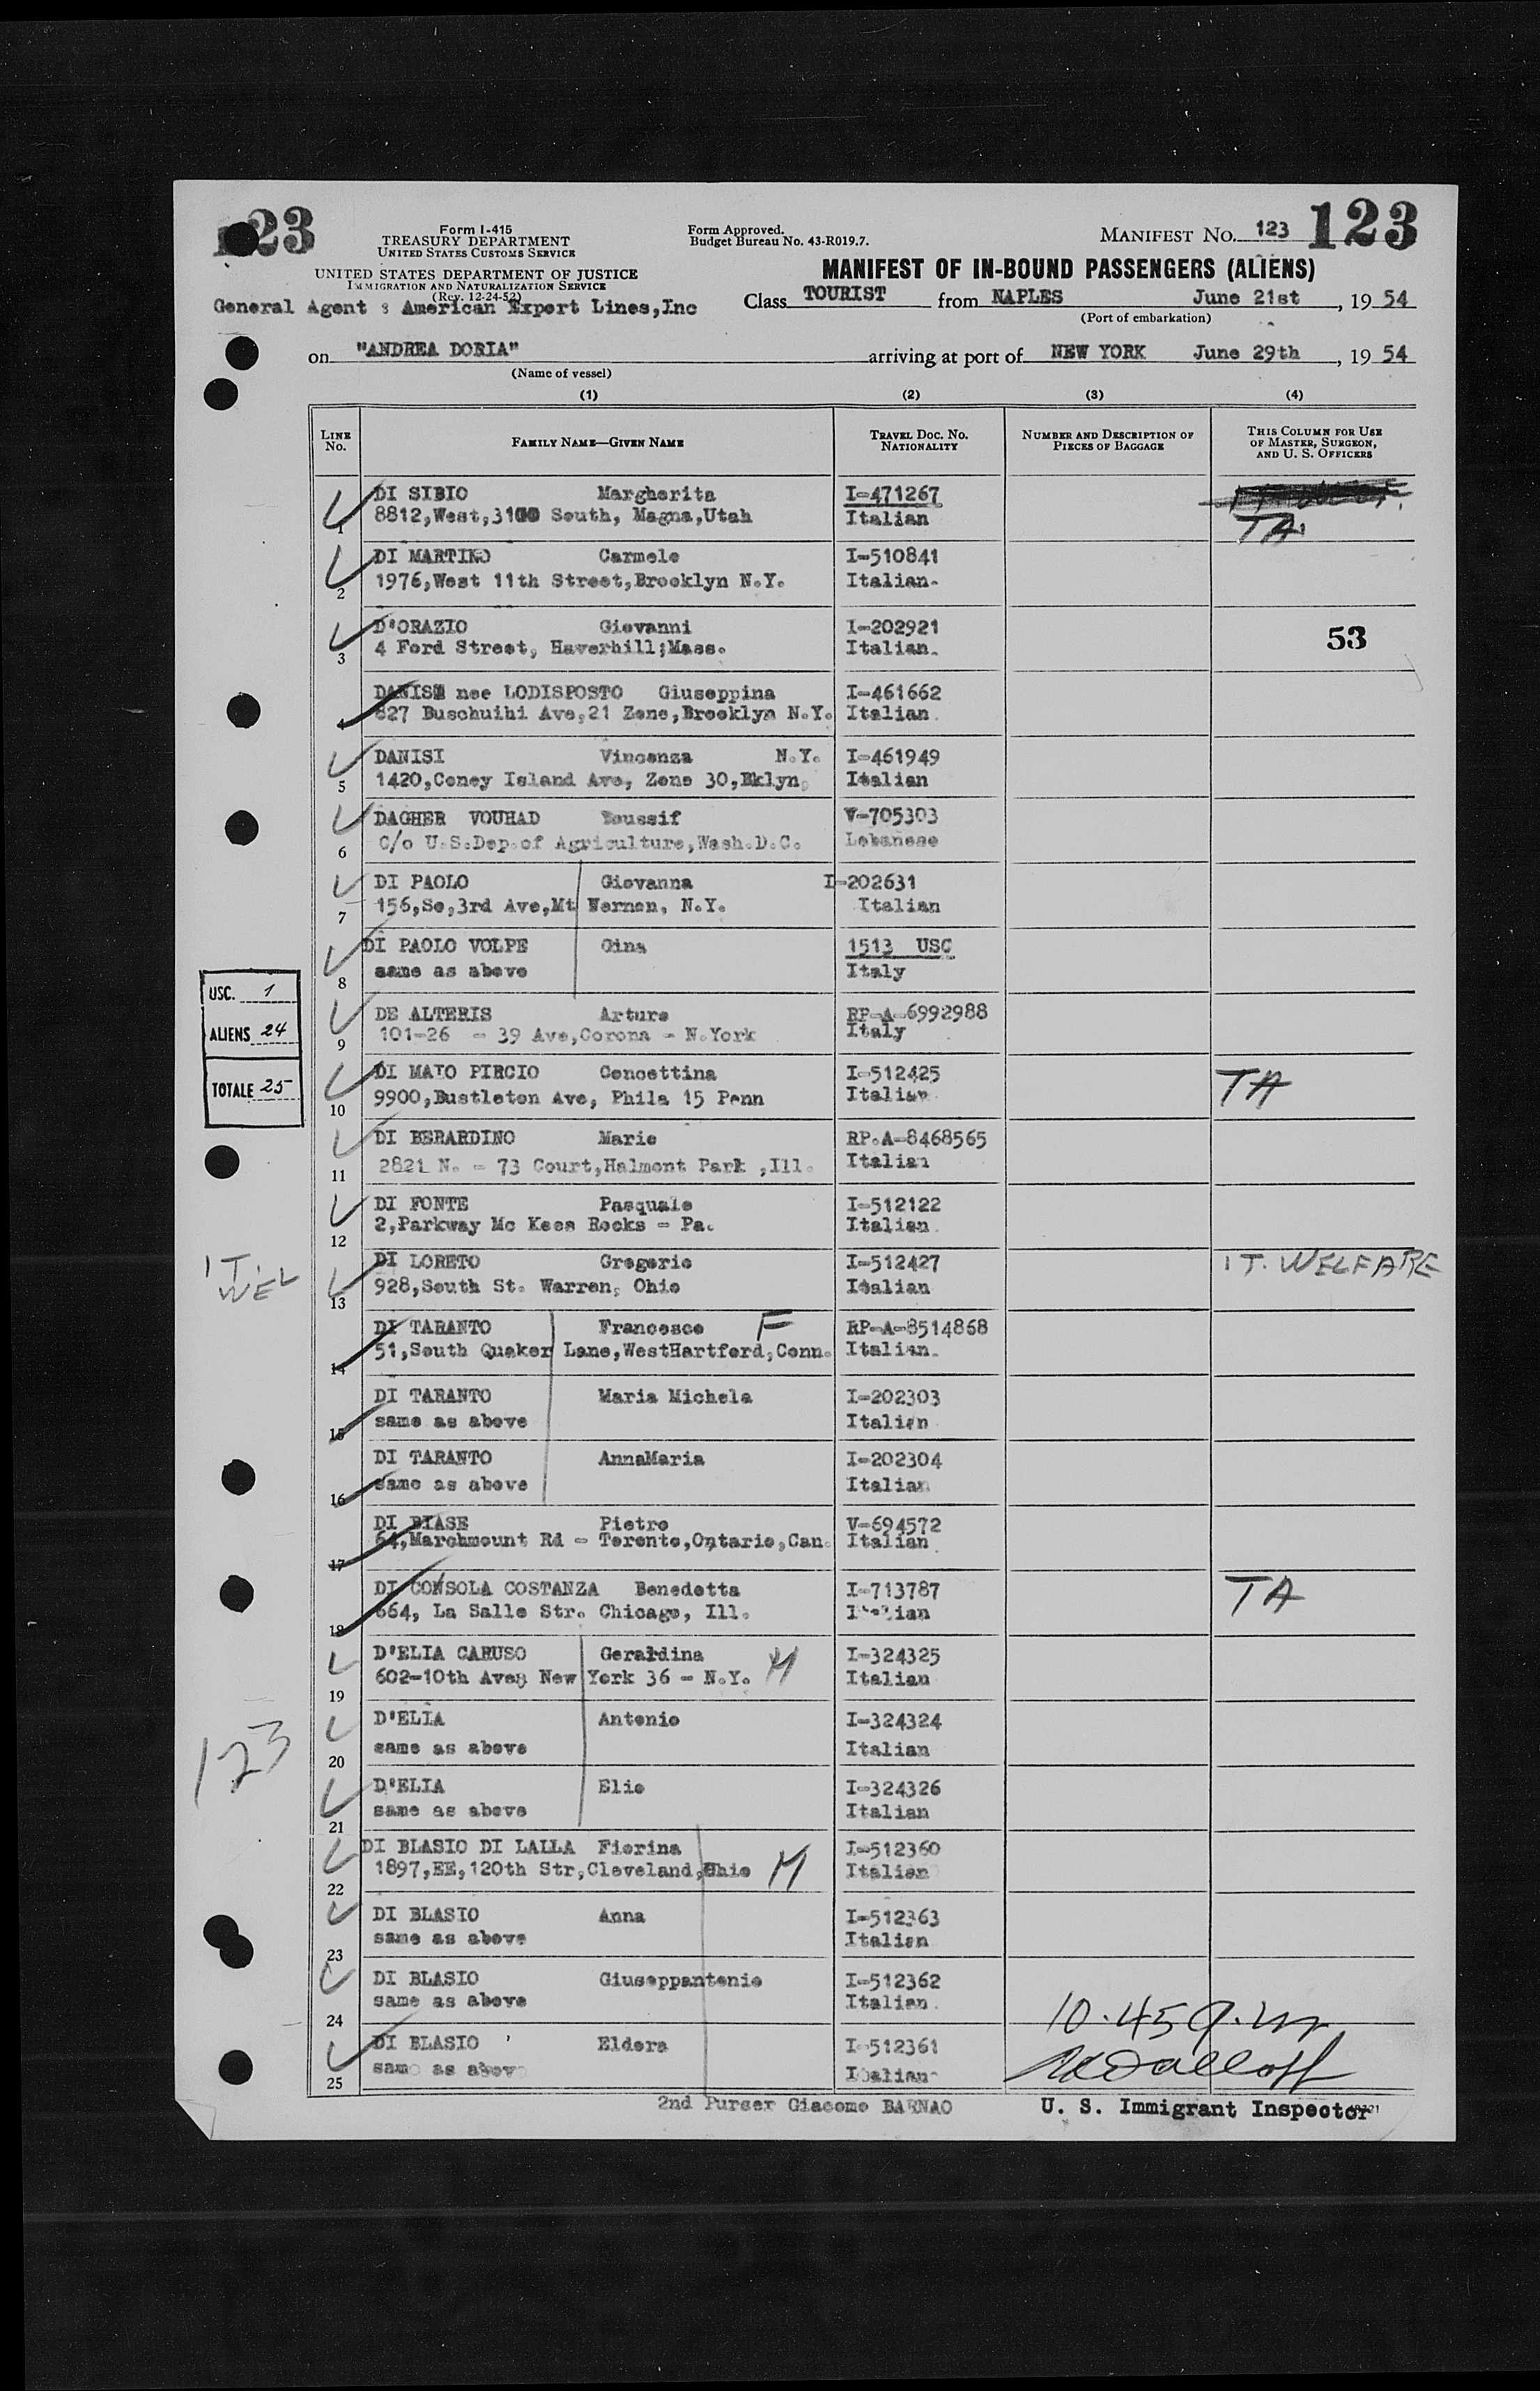 123
Form I-415
TREASURY DEPARTMENT
UNITED STATES CUSTOMS SERVICE
UNITED STATES DEPARTMENT OF JUSTICE
IMMIGRATION AND NATURALIZATION SERVICE
(Rev. 12-24-52)
General Agent : American Export Lines,Inc
Form Approved.
Budget Bureau No. 43-R019.7.
MANIFEST NO. 123 123
MANIFEST OF IN-BOUND PASSENGERS (ALIENS)
Class TOURIST from NAPLES June 21st, 19 54
(Port of embarkation)
on "ANDREA DORIA" arriving at port of NEW YORK June 29th, 19 54
(Name of vessel)
(1) (2) (3) (4)
LINE NO. FAMILY NAME—GIVEN NAME TRAVEL DOC. NO. NATIONALITY NUMBER AND DESCRIPTION OF PIECES OF BAGGAGE THIS COLUMN FOR USE OF MASTER, SURGEON, AND U. S. OFFICERS
DI SIBIO Margherita I-471267
1 8812,West,3100 South, Magna,Utah Italian TA
DI MARTINO Carmelo I-510841
2 1976,West 11th Street,Brooklyn N.Y. Italian-
D'ORAZIO Giovanni I-202921 53
3 4 Ford Street, Haverhill;Mass. Italian.
DANISE nee LODISPOSTO Giuseppina I-461662
4 827 Buschuihi Ave,21 Zone,Brooklyn N.Y. Italian.
DANISI Vincenza N.Y. I-461949
5 1420,Coney Island Ave, Zone 30,Bklyn, Italian
DAGHER VOUHAD Youssif V-705303
6 C/o U.S.Dep.of Agriculture,Wash.D.C. Lebanese
DI PAOLO Giovanna I-202631
7 156,So,3rd Ave,Mt Vernon, N.Y. Italian
DI PAOLO VOLPE Gina 1513 USC
8 same as above Italy
USC. 1
ALIENS 24
TOTALE 25
DE ALTERIS Arturo RP-A-6992988
9 101-26 - 39 Ave,Corona - N.York Italy
DI MATO PIRCIO Concettina I-512425 TA
10 9900,Bustleton Ave, Phila 15 Penn Italian.
DI BERARDINO Mario RP.A-8468565
11 2821 N. - 73 Court,Halmont Park ,Ill. Italian
DI FONTE Pasquale I-512122
12 2,Parkway Mc Kees Rocks - Pa. Italian.
1 T. WEL
DI LORETO Gregorio I-512427 1 T. WELFARE
13 928,South St. Warren, Ohio Italian
DI TARANTO Francesco F RP-A-8514868
14 51,South Quaker Lane,WestHartford,Conn. Italian.
DI TARANTO Maria Michela I-202303
15 same as above Italian
DI TARANTO AnnaMaria I-202304
16 same as above Italian
DI BIASE Pietro V-694572
17 64,Marchmount Rd - Toronto,Ontario,Can. Italian.
DI CONSOLA COSTANZA Benedetta I-713787 TA
18 664, La Salle Str. Chicago, Ill. Italian
D'ELIA CARUSO Geraldina M I-324325
19 602-10th Ave, New York 36 - N.Y. Italian
123
D'ELIA Antonio I-324324
20 same as above Italian
D'ELIA Elio I-324326
21 same as above Italian
DI BLASIO DI LALLA Fiorina I-512360
22 1897,EE,120th Str,Cleveland,Ohio M Italian
DI BLASIO Anna I-512363
23 same as above Italian
DI BLASIO Giuseppantonio I-512362
24 same as above Italian.
10.45 a.m
DI BLASIO Eldora I-512361
25 same as above Italian
2nd Purser Giacomo BARNAO
U. S. Immigrant Inspector